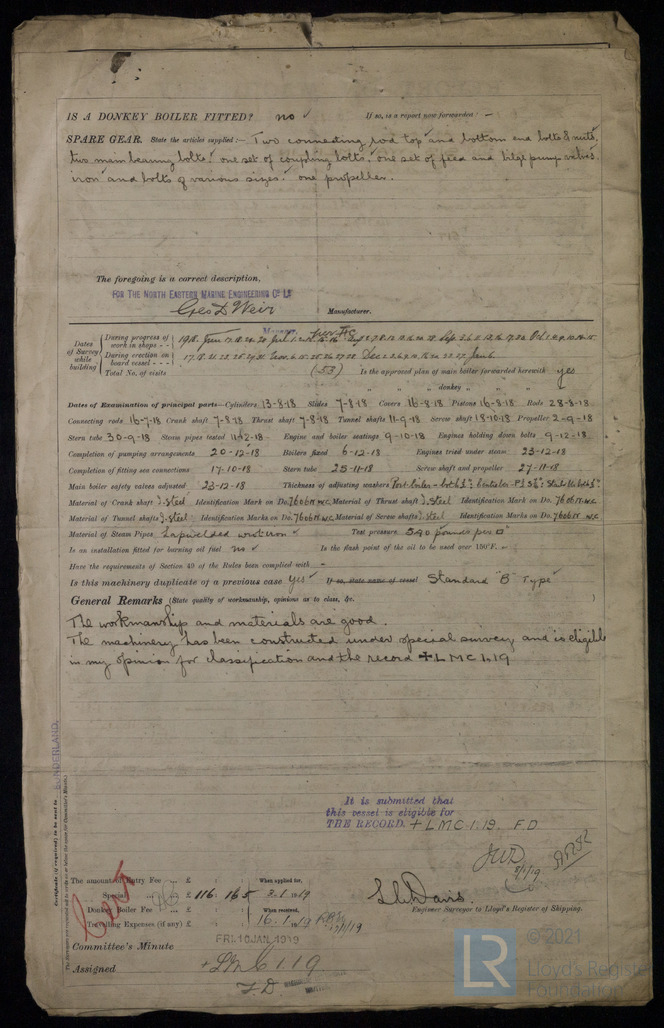 IS A DONKEY BOILER FITTED? no ✓ If so, is a report now forwarded? –
SPARE GEAR. State the articles supplied:— Two connecting rod top and bottom end bolts & nuts,
two main bearing bolts, one set of coupling bolts, one set of feed and bilge pump valves,
iron and bolts of various sizes. one propeller.
The foregoing is a correct description,
FOR THE NORTH EASTERN MARINE ENGINEERING Co Ld
Geo D Weir Manufacturer.
Manager,
Dates of Survey while building
During progress of work in shops - -
During erection on board vessel - - -
Total No. of visits (53) Is the approved plan of main boiler forwarded herewith yes
" " " donkey " " "
Dates of Examination of principal parts—Cylinders 13-8-18 Slides 7-8-18 Covers 16-8-18 Pistons 16-8-18 Rods 28-8-18
Connecting rods 16-7-18 Crank shaft 7-8-18 Thrust shaft 7-8-18 Tunnel shafts 11-9-18 Screw shaft 18-10-18 Propeller 2-9-18
Stern tube 30-9-18 Steam pipes tested Engine and boiler seatings 9-10-18 Engines holding down bolts 9-12-18
Completion of pumping arrangements 20-12-18 Boilers fixed 6-12-18 Engines tried under steam 23-12-18
Completion of fitting sea connections 17-10-18 Stern tube 25-11-18 Screw shaft and propeller 27-11-18
Main boiler safety valves adjusted 23-12-18 Thickness of adjusting washers
Material of Crank shaft S. Steel Identification Mark on Do. 7606K W.C. Material of Thrust shaft S. Steel Identification Mark on Do. 7606K W.C.
Material of Tunnel shafts S. Steel Identification Marks on Do. 7606K W.C. Material of Screw shafts S. Steel Identification Marks on Do. 7606K W.C.
Material of Steam Pipes Lapwelded wrot iron ✓ Test pressure 540 pounds per □"
Is an installation fitted for burning oil fuel no ✓ Is the flash point of the oil to be used over 150°F. –
Have the requirements of Section 49 of the Rules been complied with –
Is this machinery duplicate of a previous case Yes ✓ If so, state name of vessel Standard "B" Type
General Remarks (State quality of workmanship, opinions as to class, &c.)
The workmanship and materials are good.
The machinery has been constructed under special survey and is eligible
in my opinion for classification and the record + L M C 1.19
SUNDERLAND.
Certificate (if required) to be sent to
It is submitted that
this vessel is eligible for
THE RECORD. + L M C 1.19. F.D
JWD
8/1/19
The amount of Entry Fee ... £ : : When applied for,
Special ... £ 116 : 16 : 5 2.1.1919
Donkey Boiler Fee ... £ : : When received,
Travelling Expenses (if any) £ : : 16.1.1919
Engineer Surveyor to Lloyd's Register of Shipping.
Committee's Minute FRI. 10 JAN. 1919
Assigned + L M C 1.19
F.D.
LR
© 2021
Lloyd's Register
Foundation